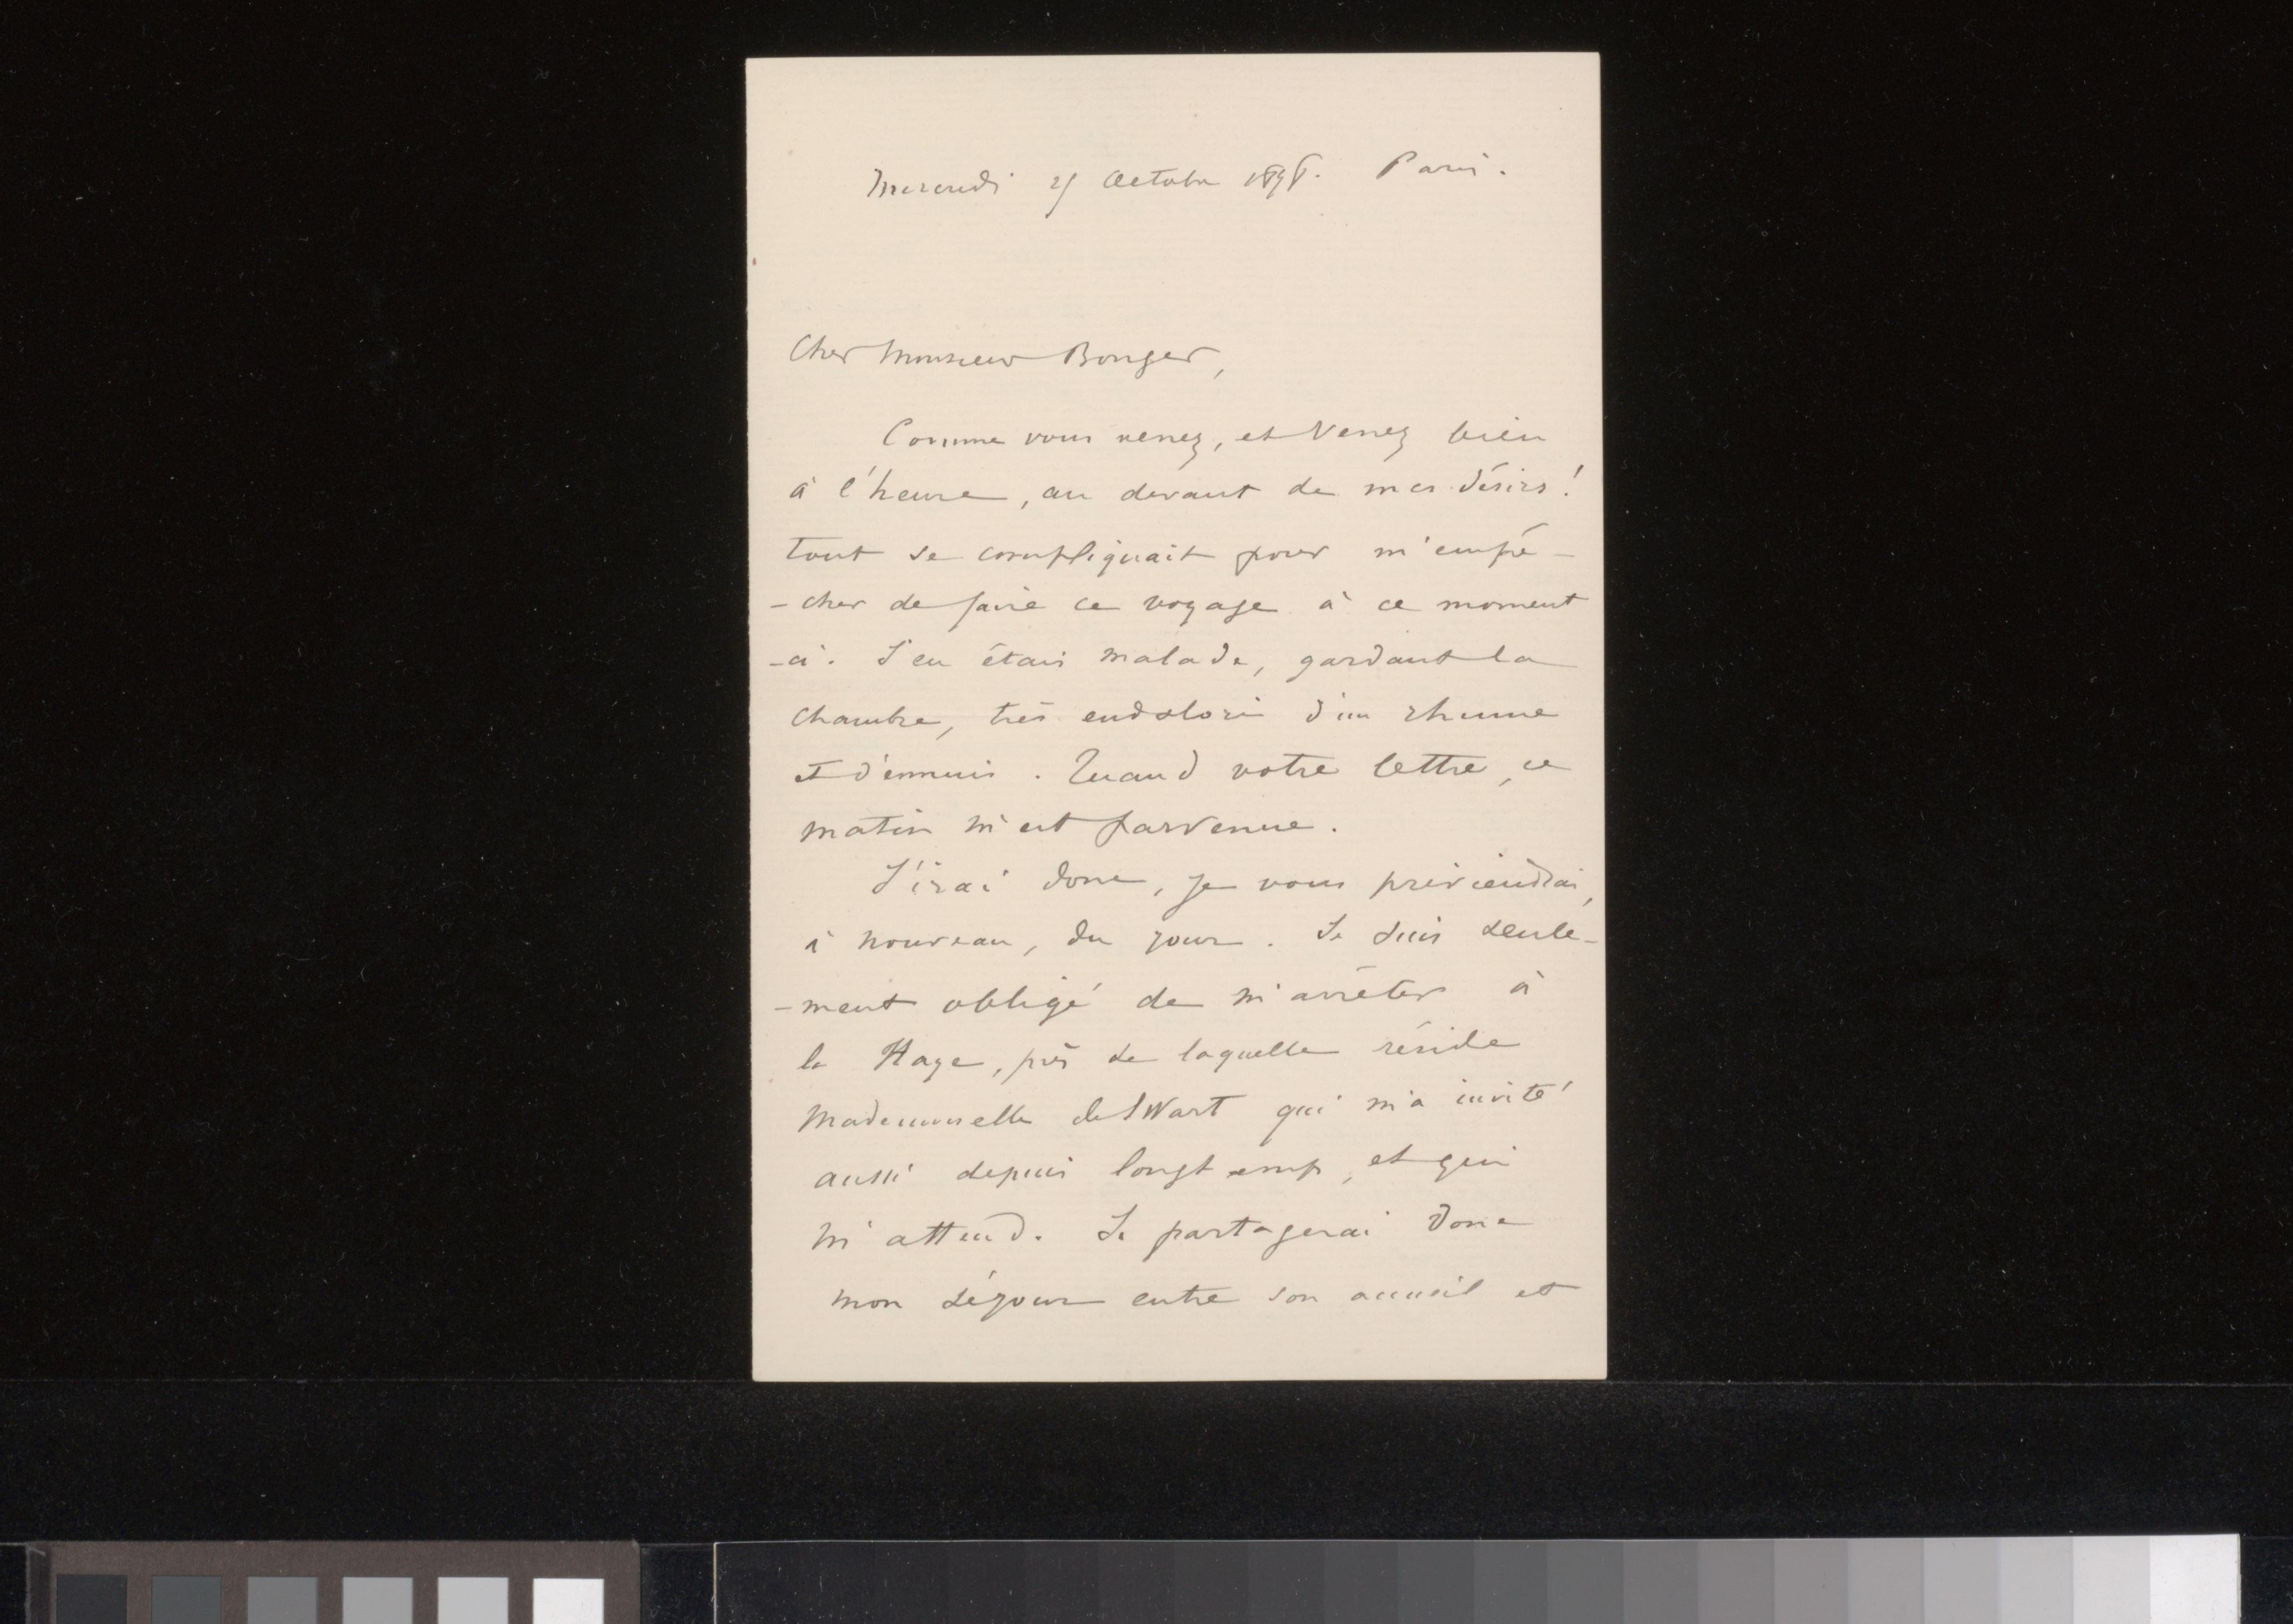 Mercredi 25 Octobre 1898. Paris.
Cher Monsieur Bonger,
Comme vous venez, et venez bien
à l'heure, au devant de mes désirs!
tout se compliquait pour m'empê-
-cher de faire ce voyage à ce moment
-ci. J'en étais malade, gardant la
chambre, très endolori d'un rhume
et d'ennuis. Quand votre lettre, ce
matin m'est parvenue.
J'irai donc, je vous préviendrai,
à nouveau, du jour. Je suis seule-
-ment obligé de m'arrêter à
la Haye, près de laquelle réside
Mademoiselle de Swart qui m'a invité
aussi depuis longtemp, et qui
m'attend. Je partagerai donc
mon séjour entre son accueil et